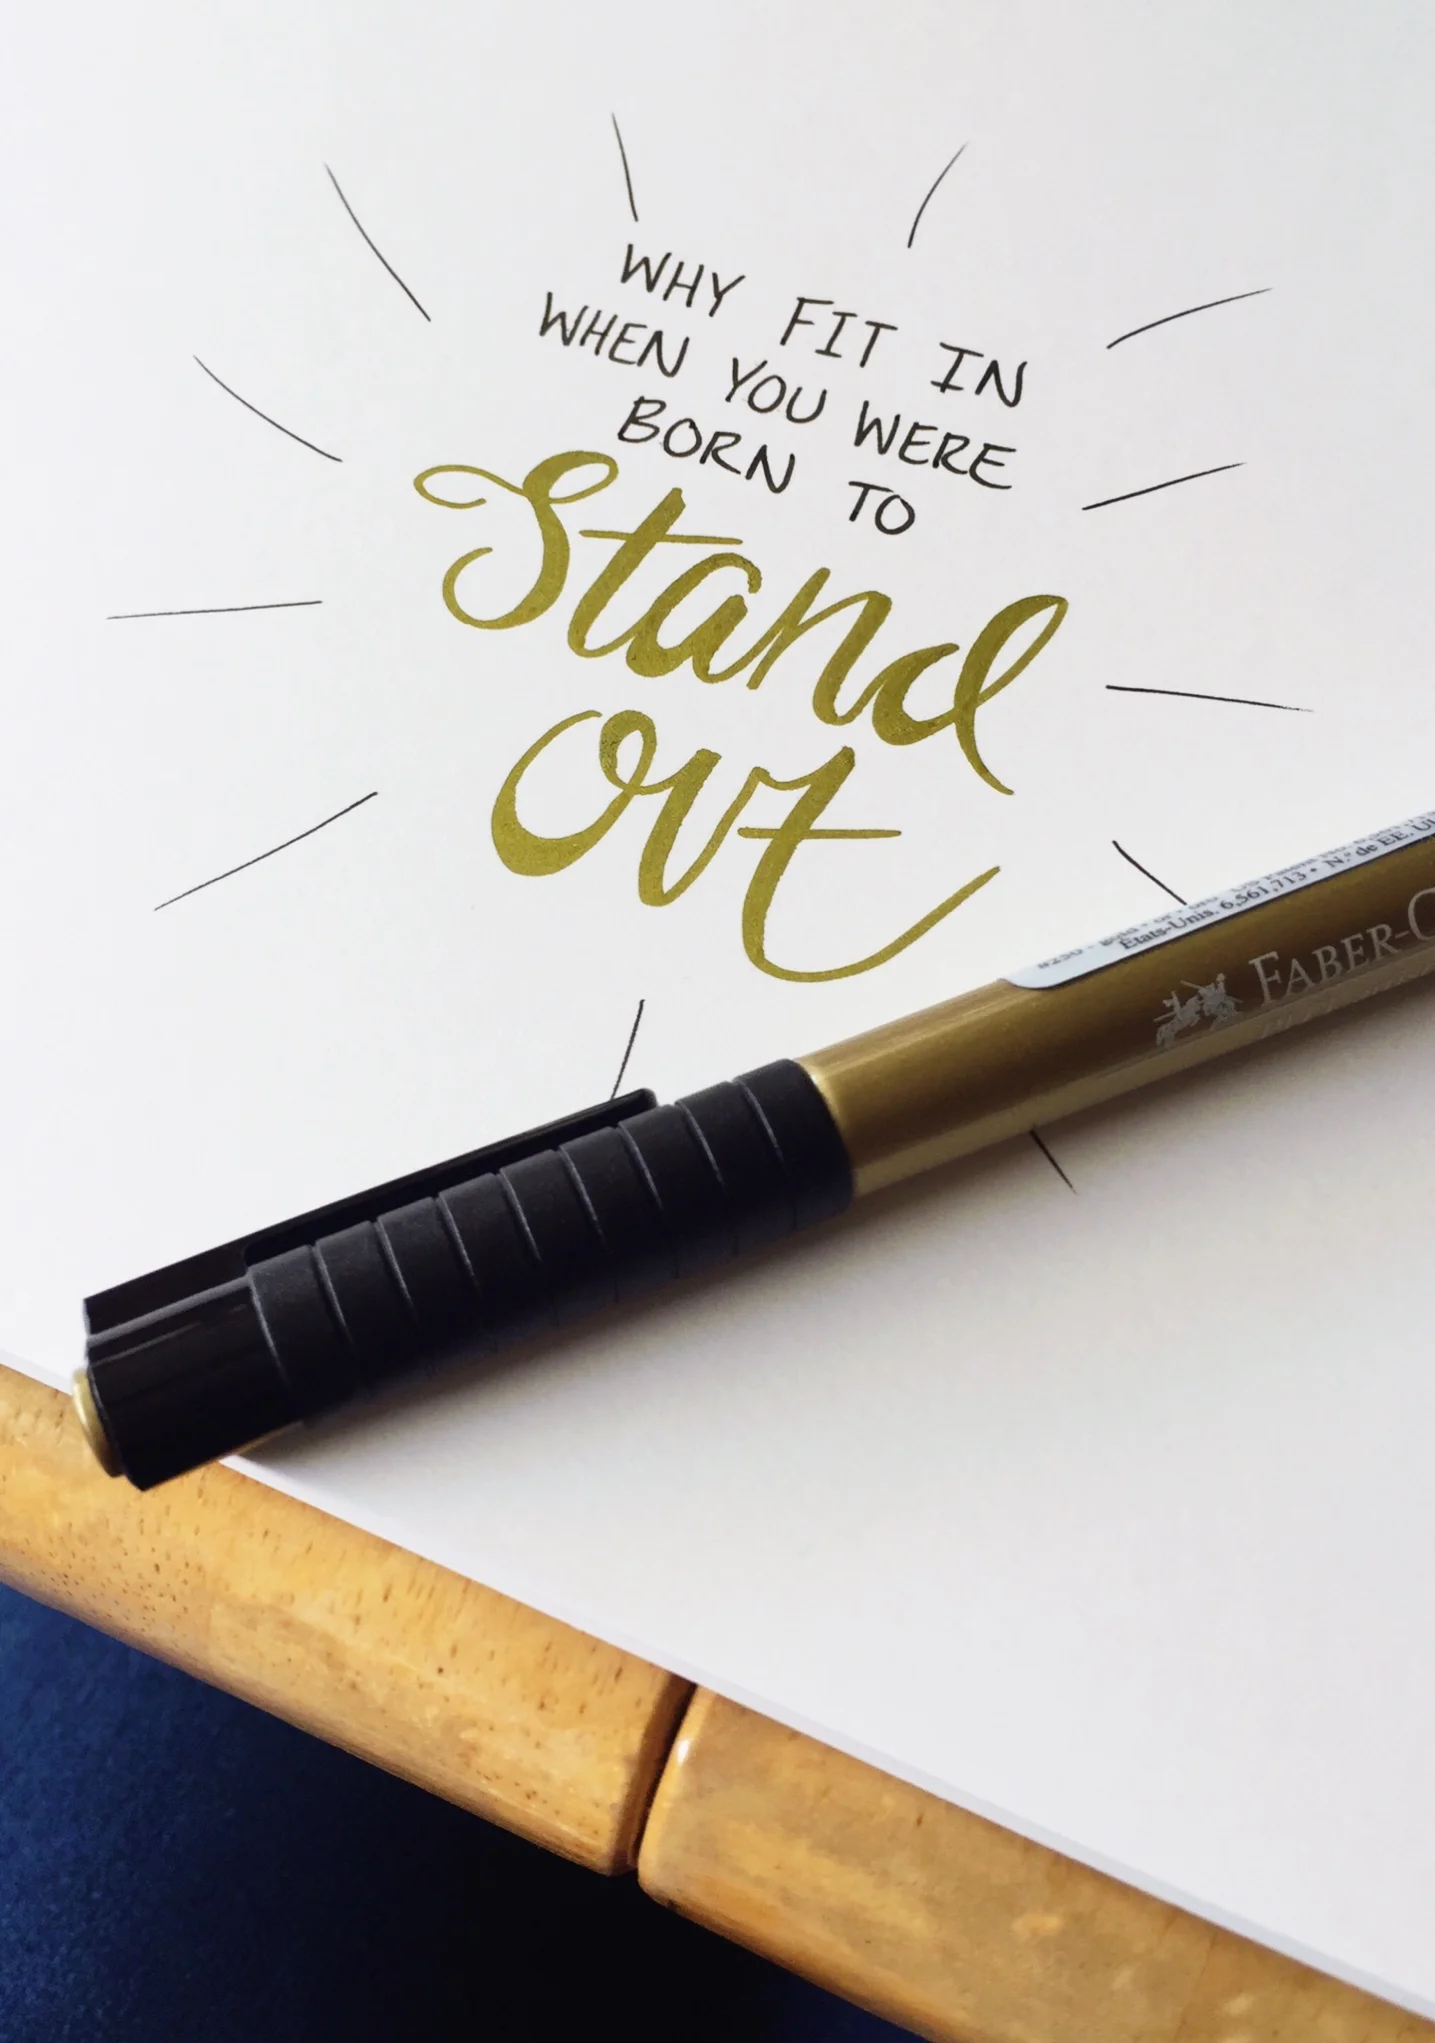 WHY FIT IN
WHEN YOU WERE
BORN TO
Stand
out
États-Unis. 6,561,713 • N.º de EE. U
FABER-C